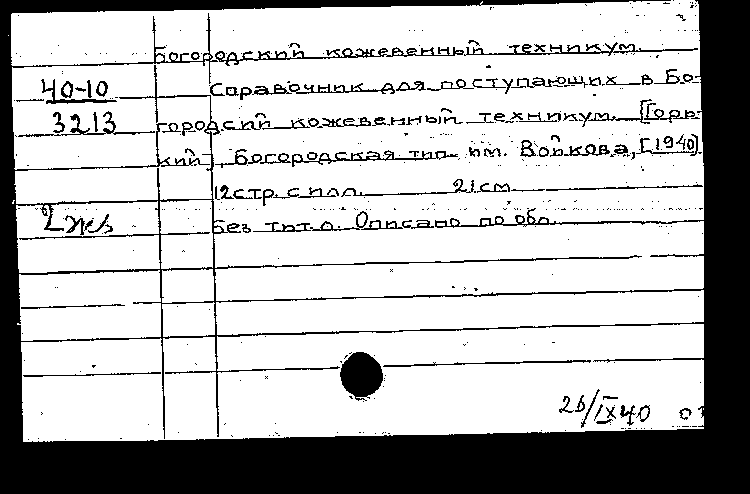 Богородский кожевенный техникум.
40-10 Справочник для поступающих в Бо-
3213 городский кожевенный техникум. [Горь-
кий], Богородская тип. им. Войкова, [1940]
12 стр. с илл. 21 см
2 экз Без тит. л. Описано по обл.
26/IX 40